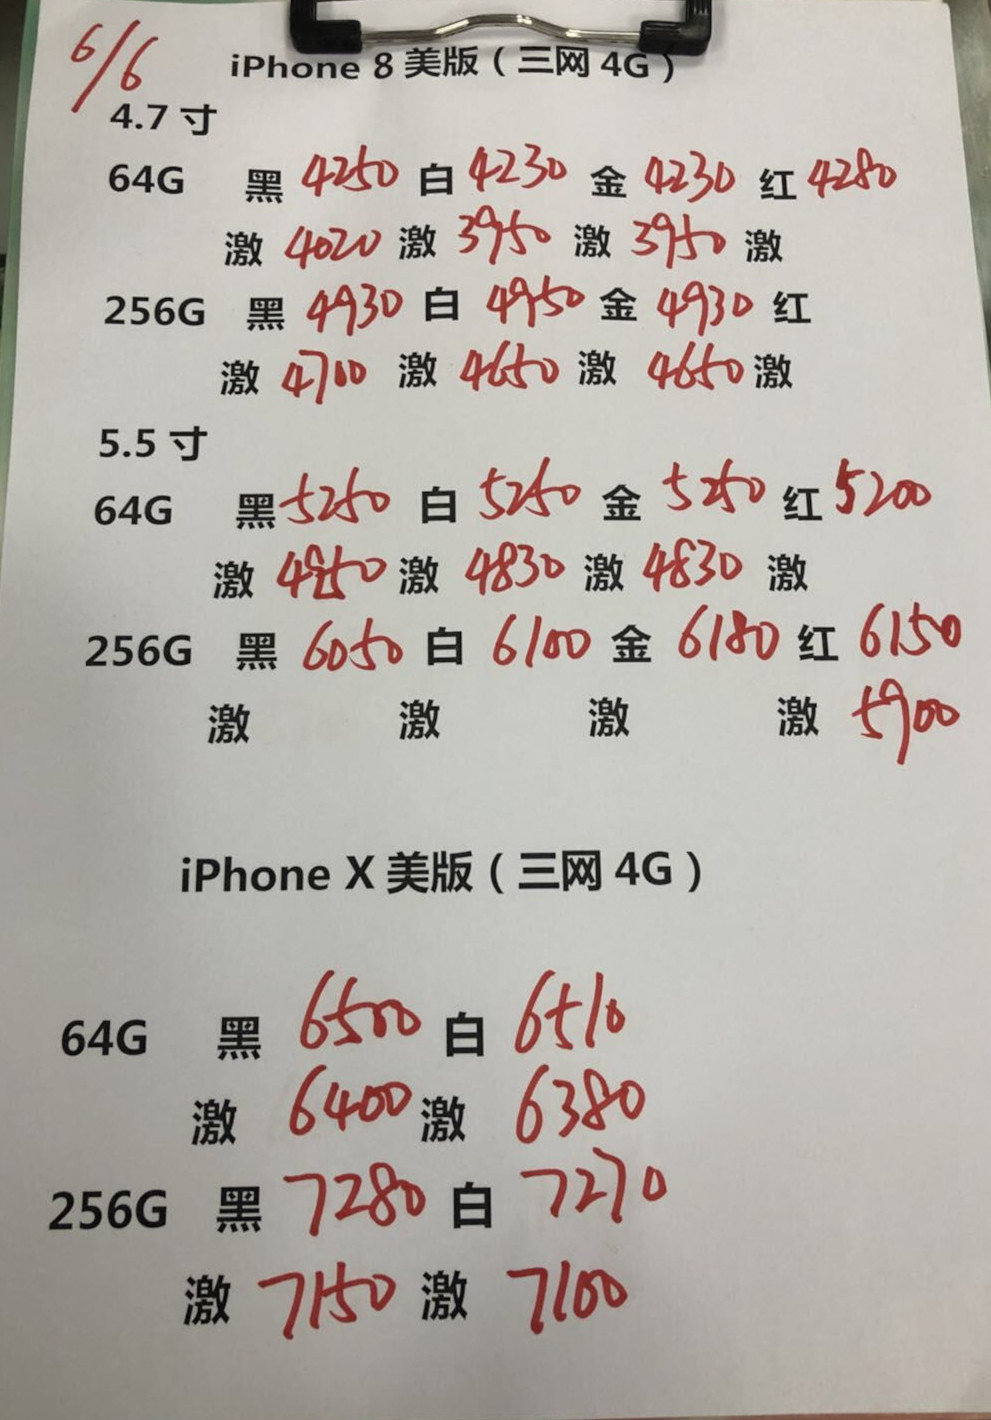 6/6
iPhone 8 美版（三网 4G）
4.7 寸
64G 黑 4250 白 4230 金 4230 红 4280
激 4020 激 3950 激 3950 激
256G 黑 4930 白 4950 金 4930 红
激 4700 激 4650 激 4650 激
5.5 寸
64G 黑 5250 白 5250 金 5250 红 5200
激 激 4830 激 4830 激
256G 黑 6050 白 6100 金 6180 红 6150
激 激 激 激 5900
iPhone X 美版（三网 4G）
64G 黑 6500 白 6510
激 6400 激 6380
256G 黑 7280 白 7270
激 7150 激 7100